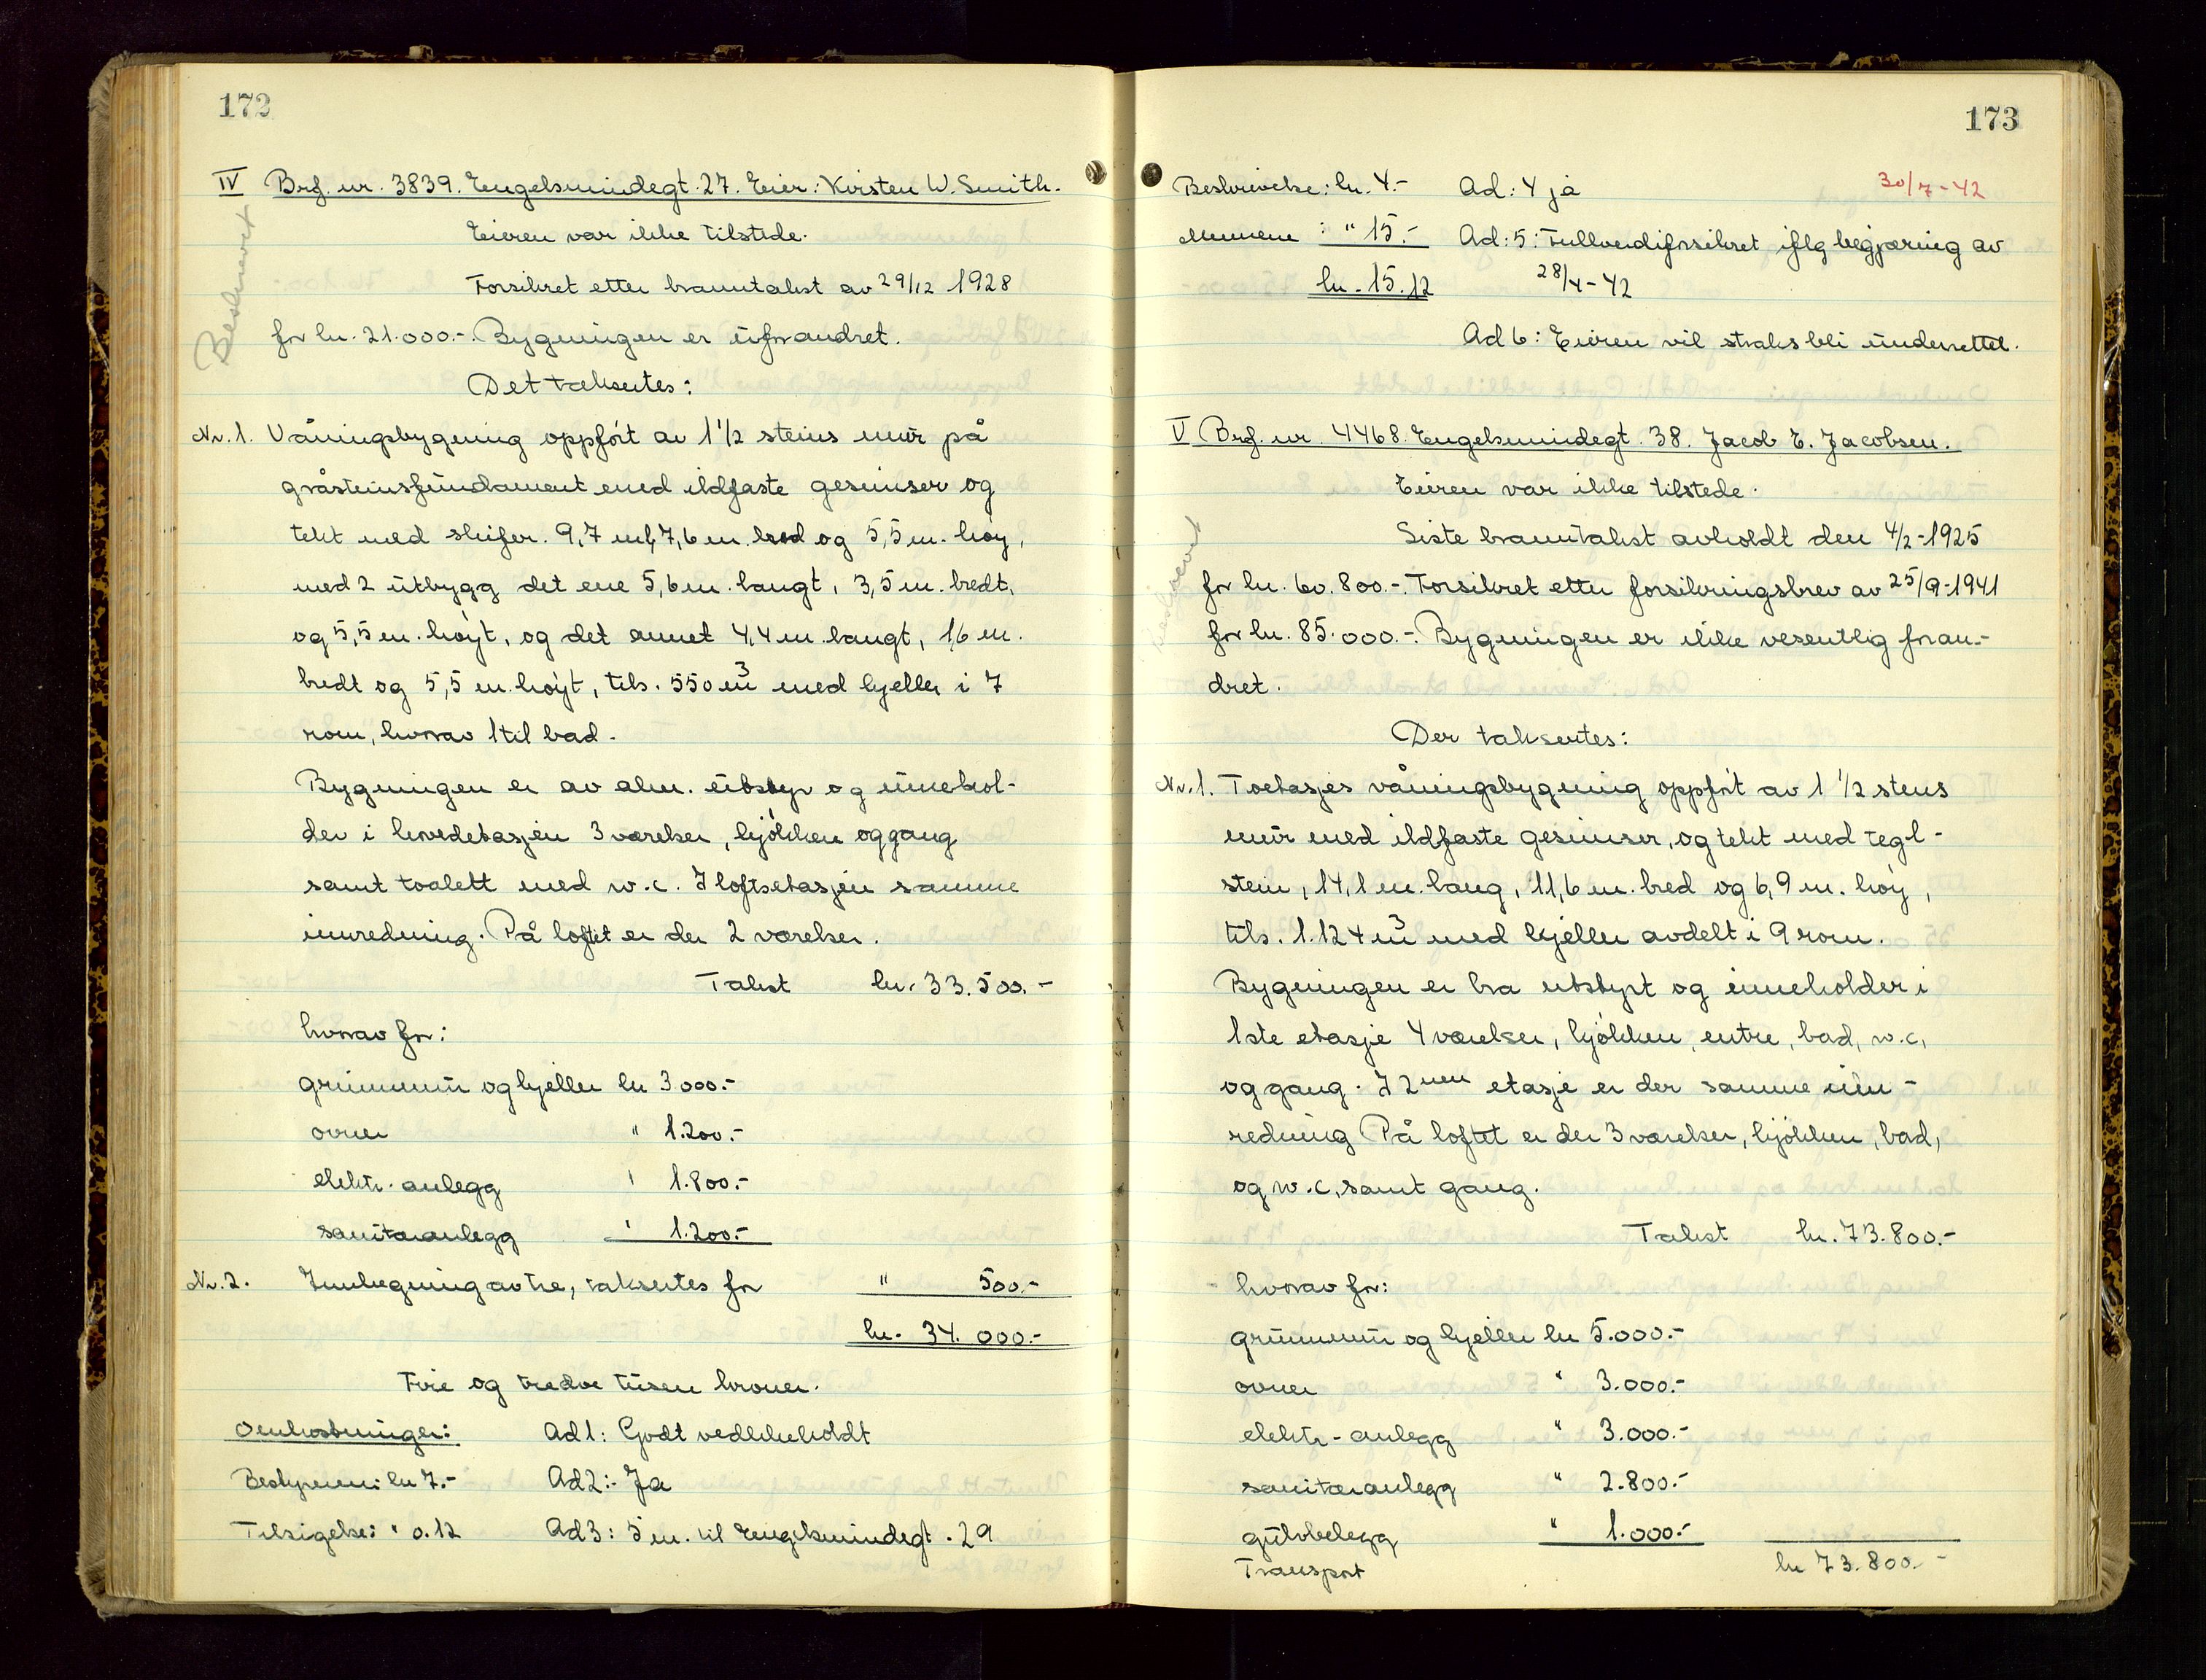 172
IV Brf. nr. 3839. Engelsmindegt. 27. Eier: Kirsten W. Smith.
Eieren var ikke tilstede.
Forsikret etter branntakst av 29/12 1928
for kr. 21.000.-. Bygningen er uforandret.
Beskrevet
Det takseertes:
Nr. 1. Våningsbygning oppført av 1 1/2 steins mur på
gråsteinsfundament med ildfaste gesimser og
tekt med skifer. 9,7 m l, 7,6 m. bred og 5,5 m. høy,
med 2 utbygg det ene 5,6 m. langt, 3,5 m. bredt,
og 5,5 m. høyt, og det annet 4,4 m. langt, 1,6 m.
bredt og 5,5 m. høyt, tils. 550 m³ med kjeller i 7
rom, hvorav 1 til bad.
Bygningen er av alm. utstyr og innehol-
der i hovedetasjen 3 værelser, kjøkken og gang
samt toalett med w.c. I loftsetasjen samme
innredning. På loftet er der 2 værelser.
Takst kr. 33.500.-
hvorav for:
grunnmur og kjeller kr 3.000.-
ovner " 1.200.-
elektr. anlegg " 1.800.-
sanitæranlegg " 1.200.-
Nr. 2. Innhegning av tre, taksertes for " 500.-
kr. 34.000.-
Fire og tredve tusen kroner.
Omkostninger: Ad 1: Godt vedlikeholdt
Bestyreren: kr 7.- Ad 2:- Ja
Tilsigelse: " 0.12 Ad 3: 5 m. til Engelsmindegt. 29
173
Beskrivelse: kr. 4.- Ad: 4 ja 30/7-42
Mennene : " 15.- Ad: 5: Fullverdiforsikret iflg begjæring av
kr. 15.12 28/4-42
Ad 6: Eieren vil straks bli underrettet.
V Brf. nr. 4468. Engelsmindegt. 38. Jacob E. Jacobsen.
Eieren var ikke tilstede.
Siste branntakst avholdt den 4/2-1925
for kr. 60.800.-. Forsikret etter forsikringsbrev av 25/9-1941
for kr. 85.000.-. Bygningen er ikke vesentlig foran-
dret.
Der taksertes:
Nr. 1. Toetasjes våningsbygning oppført av 1 1/2 stens
mur med ildfaste gesimser, og tekt med tegl-
stein, 14,1 m. lang, 11,6 m. bred og 6,9 m. høy,
tils. 1.124 m³ med kjeller avdelt i 9 rom.
Bygningen er bra utstyrt og inneholder i
1ste etasje 4 værelser, kjøkken, entre, bad, w.c,
og gang. I 2nen etasje er der samme inn-
redning På loftet er der 3 værelser, kjøkken, bad,
og w.c, samt gang.
Takst kr. 73.800.-
hvorav for:
grunnmur og kjeller kr 5.000.-
ovner " 3.000.-
elektr- anlegg " 3.000.-
sanitæranlegg " 2.800.-
gulvbelegg " 1.000.-
Transport kr 73.800.-